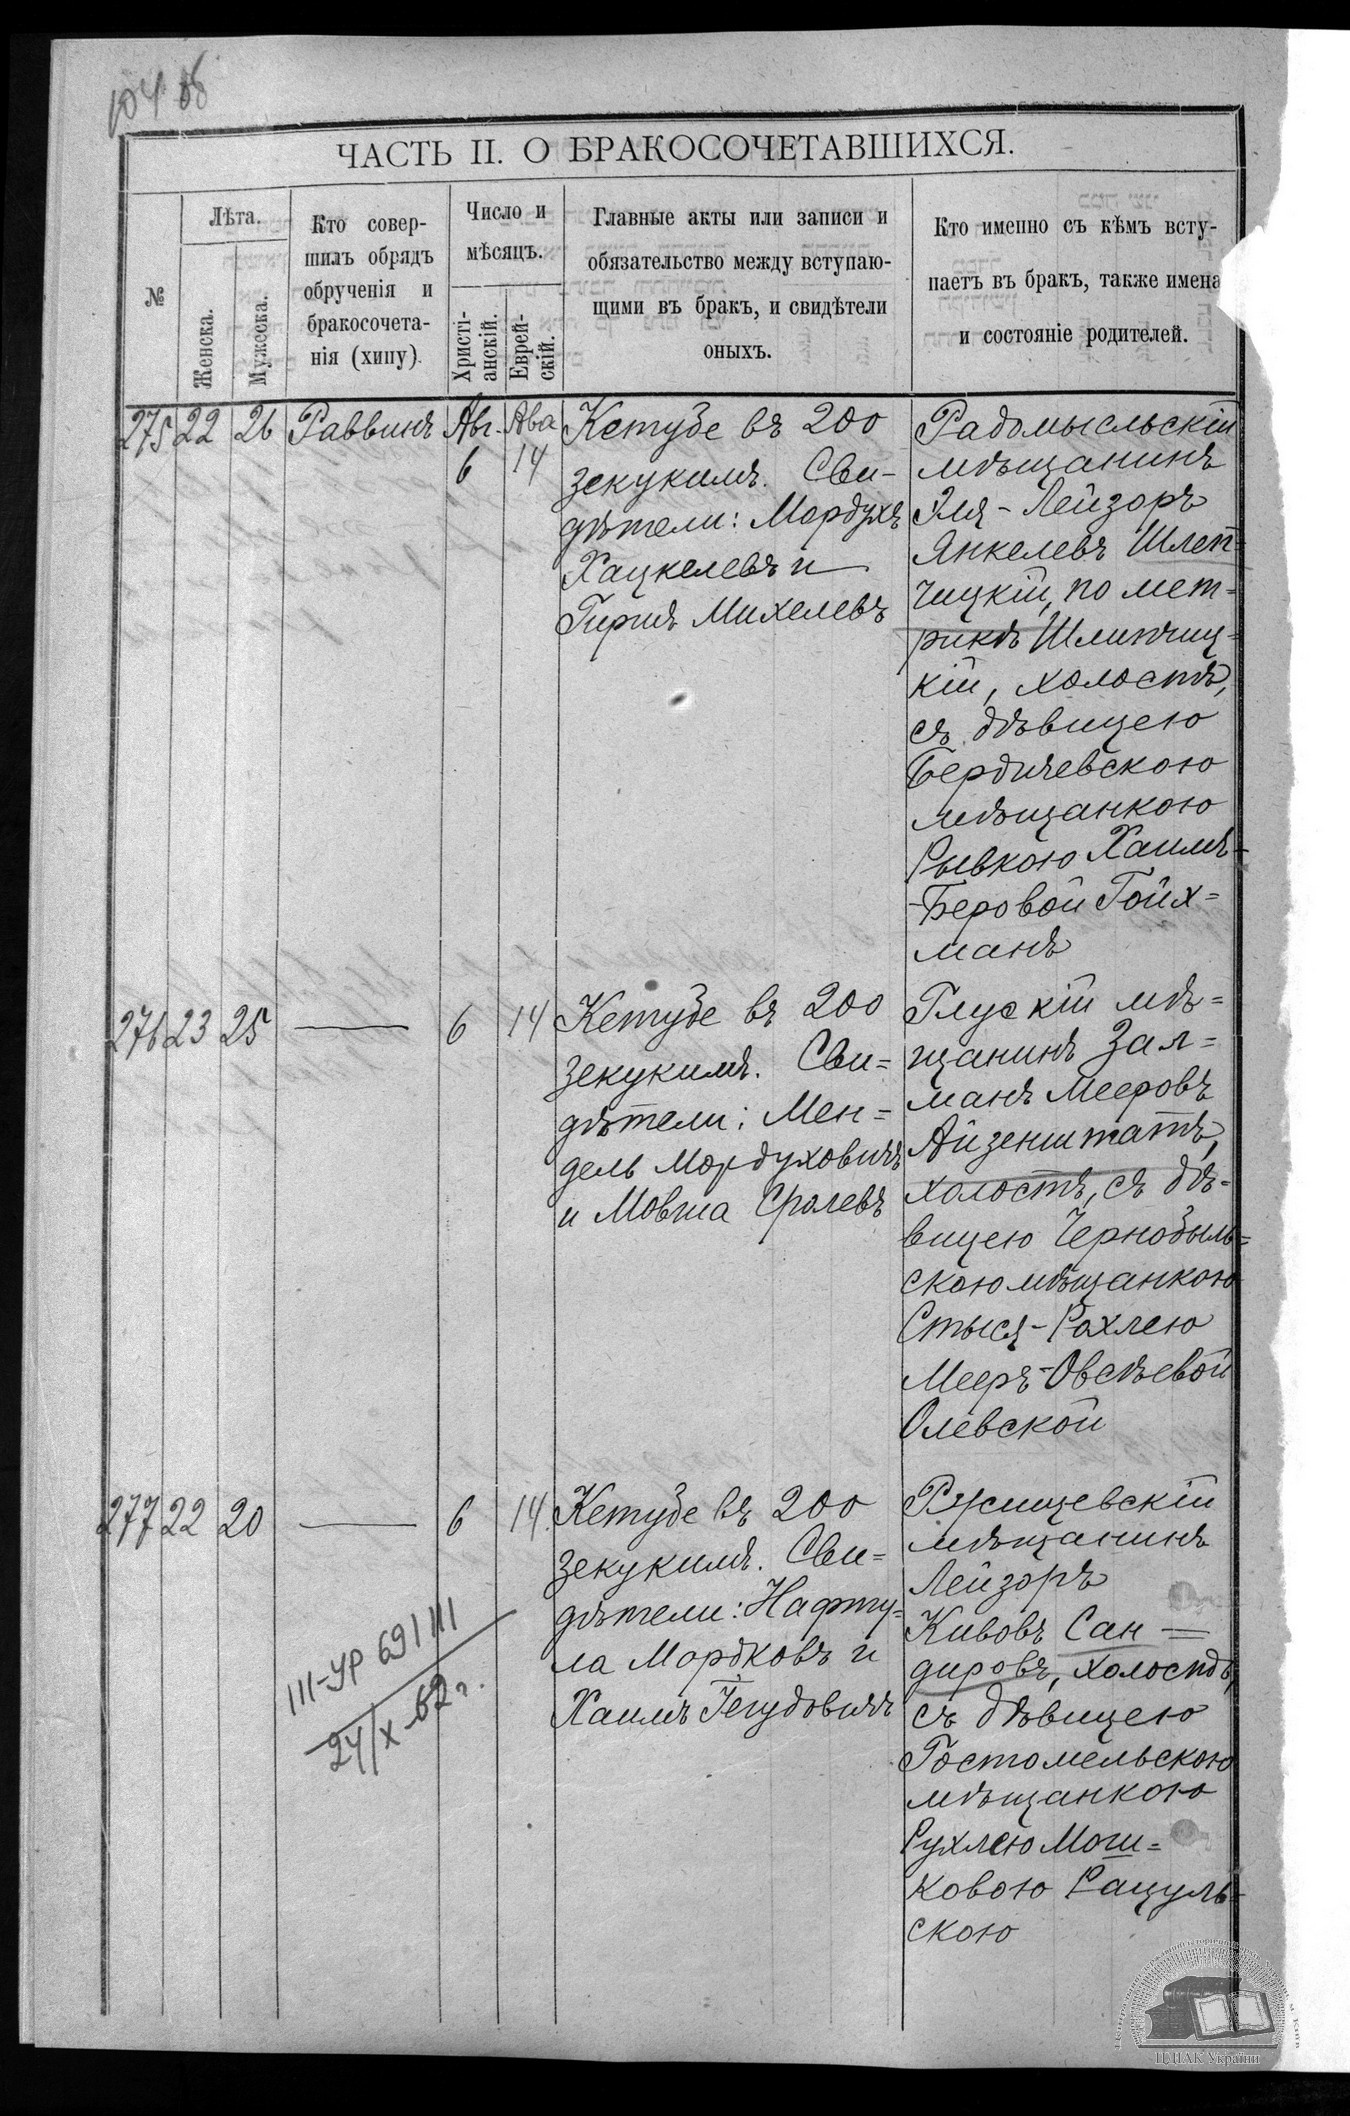 104 об
ЧАСТЬ II. О БРАКОСОЧЕТАВШИХСЯ.
№
Лѣта.
Женска.
Мужеска.
Кто совер-
шилъ обрядъ
обрученія и
бракосочета-
нія (хипу)
Число и
мѣсяцъ.
Христі-
анскій.
Еврей-
скій.
Главные акты или записи и
обязательство между вступаю-
щими въ бракъ, и свидѣтели
оныхъ.
Кто именно съ кѣмъ всту-
паетъ въ бракъ, также имена
и состояніе родителей.
275 22 26 Раввинъ Авг. 6 Ава 14
Кетубе въ 200
зекукимъ. Сви-
дѣтели: Мордухъ
Хацкелевъ и
Гиршъ Михелевъ
Радомысльскій
мѣщанинъ
Эля-Лейзоръ
Янкелевъ Шлеп=
чицкій, по мет-
рикѣ Шлипчиц=
кій, холостъ,
съ дѣвицею
Бердичевскою
мѣщанкою
Рывкою Хаимъ-
-Беровой Гойх=
манъ
276 23 25 — 6 14
Кетубе въ 200
зекукимъ. Сви=
дѣтели: Мен=
дель Мордуховичъ
и Мовша Сролевъ
Глускій мѣ=
щанинъ Зал=
манъ Мееровъ
Айзенштатъ,
холостъ, съ дѣ-
вицею Чернобыль=
скою мѣщанкою
Стыся-Рохлею
Мееръ-Овсѣевой
Олевской
277 22 20 — 6 14.
Кетубе въ 200
зекукимъ. Сви=
дѣтели: Нафту=
ла Мордковъ и
Хаимъ Гегудовичъ
Ружищевскій
мѣщанинъ
Лейзоръ
Кивовъ Сан—
дировъ, холостъ,
съ дѣвицею
Гостомельскою
мѣщанкою
Рухлею Мош=
ковою Рацуль-
скою
III-УР 691111
24/X-62 г.
ЦДІАК України